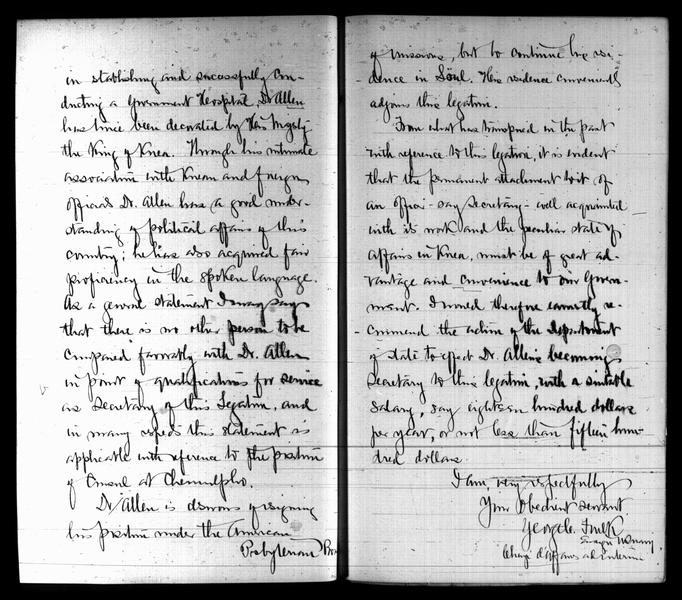 in establishing and successfully con-
ducting a Government Hospital, Dr Allen
has twice been decorated by His Majesty
the King of Korea. Through his intimate
association with Korean and foreign
officials Dr. Allen has a good under-
standing of political affairs of this
country; he has also acquired fair
proficiency in the spoken language.
As a general statement I may say
that there is no other person to be
compared favorably with Dr. Allen
in point of qualifications for service
as Secretary of this Legation, and
in many respects this statement is
applicable with reference to the position
of Consul at Chemulpho.
Dr Allen is desirous of resigning
his position under the American
Presbyterian
of missions, but to continue his resi-
dence in Söul. His residence conveniently
adjoins this legation.
From what has transpired in the past
with reference to this legation, it is evident
that the permanent attachment to it of
an officer - say Secretary - well acquainted
with its work and the peculiar state of
affairs in Korea, must be of great ad-
vantage and convenience to our Govern-
ment. I would therefore earnestly re-
commend the action of the department
of state to effect Dr. Allen's becoming
Secretary to this legation, with a suitable
salary, say eighteen hundred dollars
per year, or not less than fifteen hun-
dred dollars.
I am, very respectfully
Your Obedient servant
George C. Foulk
Ensign U.S. Navy
Chargé d'Affaires ad interim